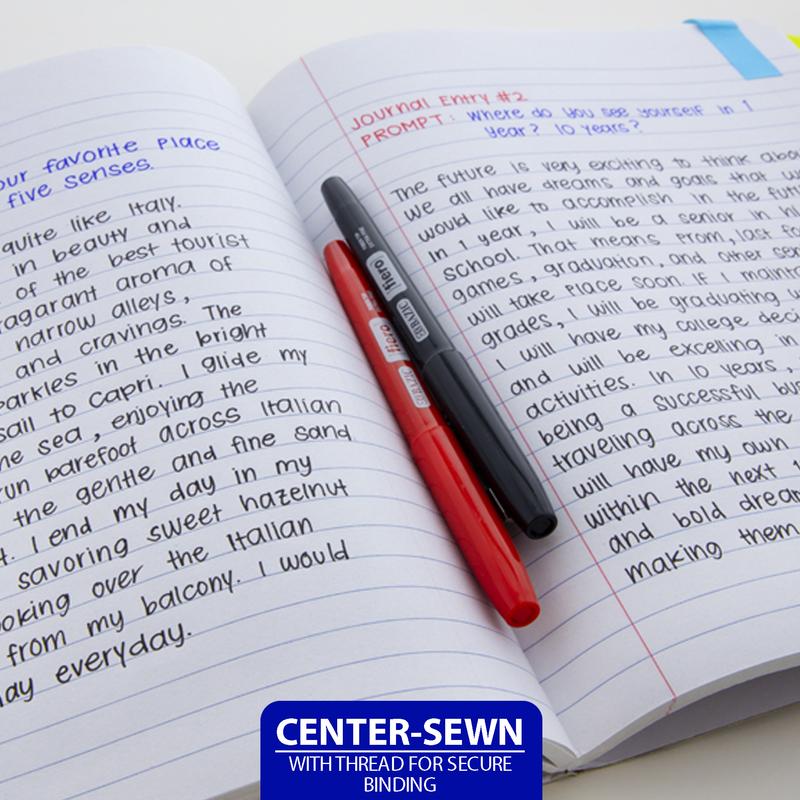 our favorite Place
five senses.
quite like Italy.
in beauty and
of the best tourist
ragarant aroma of
narrow alleys,
and cravings. The
parkles in the bright
sail to Capri. I glide my
he sea, enjoying the
run barefoot across Italian
the gentle and fine sand
t. I end my day in my
savoring sweet hazelnut
ooking over the Italian
from my balcony. I would
lay everyday.
Journal Entry #2
PROMPT: Where do you see yourself in 1
year? 10 years?
The future is very exciting to think abou
We all have dreams and goals that we
would like to accomplish in the futu
In 1 year, I will be a senior in hi
school. That means Prom, last fo
games, graduation, and other sen
will take place soon. If I mainta
grades, I will be graduating w
I will have my college deci
and will be excelling in
activities. In 10 years,
being a successful bu
traveling across the
will have my own
within the next 1
and bold dream
making them
fiero
BAZIC
fiero
BAZIC
CENTER-SEWN
WITH THREAD FOR SECURE
BINDING